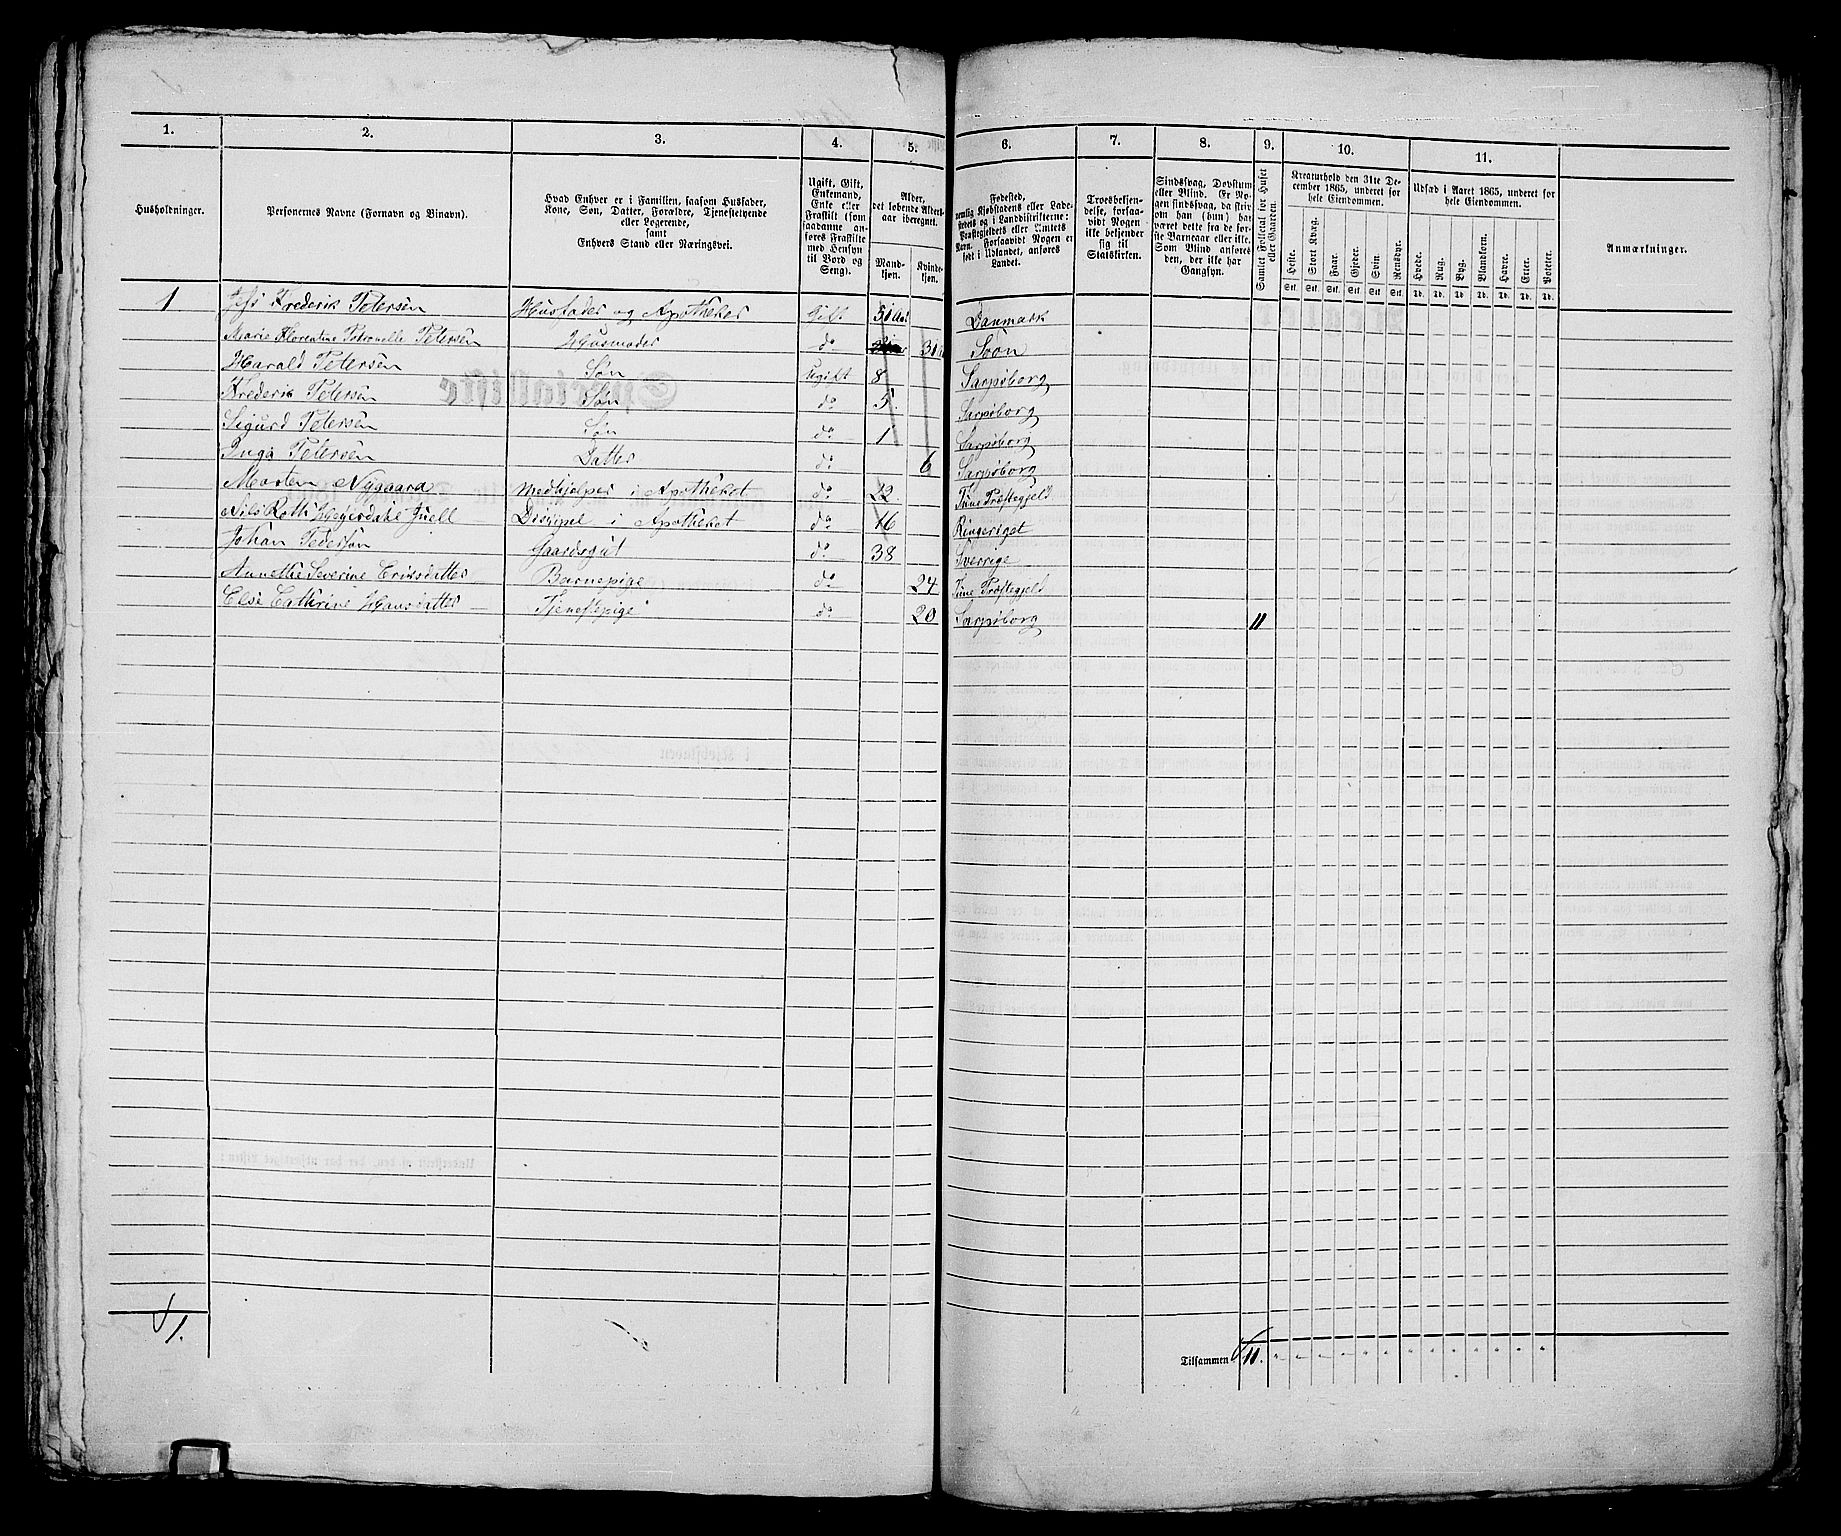 1. 2. 3. 4. 5. 6. 7. 8. 9. 10. 11.
Husholdninger.
Personernes Navne (Fornavn og Binavn).
Hvad Enhver er i Familien, saasom Husfader, Kone, Søn, Datter, Forældre, Tjenestetyende eller Logerende, samt Enhvers Stand eller Næringsvei.
Ugift, Gift, Enkemand, Enke eller Fraskilt (som saadanne anføres Fraskilte med Hensyn til Bord og Seng).
Alder, det løbende Aldersaar iberegnet.
Mandkjøn. Kvindekjøn.
Fødested, nemlig Kjøbstadens eller Ladestedets og i Landdistrikterne: Præstegjeldets eller Amtets Navn. Forsaavidt Nogen er født i Udlandet, anføres Landet.
Troesbekjendelse, forsaavidt Nogen ikke bekjender sig til Statskirken.
Sindssvag, Døvstum eller Blind. Er Nogen sindssvag, da skrives om han (hun) har været dette fra de første Barneaar eller ikke. Som Blind anføres den, der ikke har Gangsyn.
Samlet Folketal for Huset eller Gaarden.
Kreaturhold den 31te December 1865, underet for hele Eiendommen.
Heste. Stort Kvæg. Faar. Gjeder. Svin. Rensdyr.
Stk. Stk. Stk. Stk. Stk. Stk.
Udsæd i Aaret 1865, underet for hele Eiendommen.
Hvede. Rug. Byg. Blandkorn. Havre. Erter. Poteter.
Td. Td. Td. Td. Td. Td. Td.
Anmærkninger.
1 Jess Frederik Petersen Husfader og Apotheker Gift 31 Danmark
Marie Florentine Petronelle Petersen Husmoder do 31 Soon
Harald Petersen Søn Ugift 8 Sarpsborg
Frederik Petersen Søn do 5. Sarpsborg
Sigurd Petersen Søn do 1 Sarpsborg
Inga Petersen Datter do 6 Sarpsborg
Morten Nygaard Medhjelper i Apotheket do 22. Tune Præstegjeld
Nils Roth Heyerdahl Juell Discipel i Apotheket do 16 Ringeriget
Johan Pedersen Gaardsgut do 38 Sverrige
Annethe Severine Eriksdatter Barnepige do 24 Tune Præstegjeld
Else Cathrine Hansdatter Tjenestepige do 20 Sarpsborg 11
1.
Tilsammen 11.